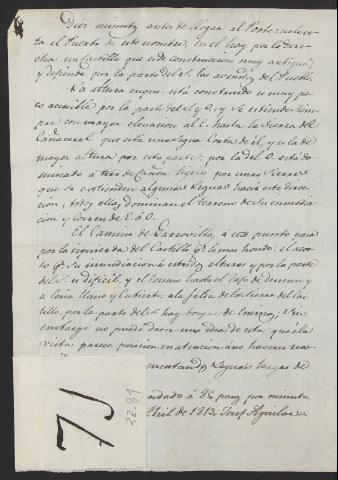 Diez minutos antes de llegar al Portezuelo es-
ta el Puerto de este nombre, en el hay por la dere-
cha un Castillo que es de construccion muy antigua
y defiende por la parte del S. las avenidas del Pueblo.
La altura en que está construido es muy po-
co accesible por la parte del S. y O. y se extiende siempre
con mayor elevacion al E. hasta la Sierra del
Cañaveral que está una legua corta de él, y es la de
mayor altura por esta parte; por la del O. está do-
minado á tiro de Cañon ligero por unas Sierras
que se extienden algunas leguas hacia esta direc-
cion, todas ellas dominan el terreno de su inmedia-
cion y corren de E. á O.
El Camino de Garrovillas, á este punto pasa
por la izquierda del Castillo q.e es lo mas hondo: el acce-
so p.r su inmediacion á estas alturas y por la parte
del S. es dificil, y el terreno hasta el Tajo de
Llano y cubierto á la falda de la Sierra del Cas-
tillo, por la parte del S. hay bosque de Encinas; sin
embargo no puede darse una idea de esta que á la
vista parece posicion en atencion á no haverse reco-
leguas largas de
ndado á paso por minuto
Abril de 1813. Josef Aguilar
75
32.81